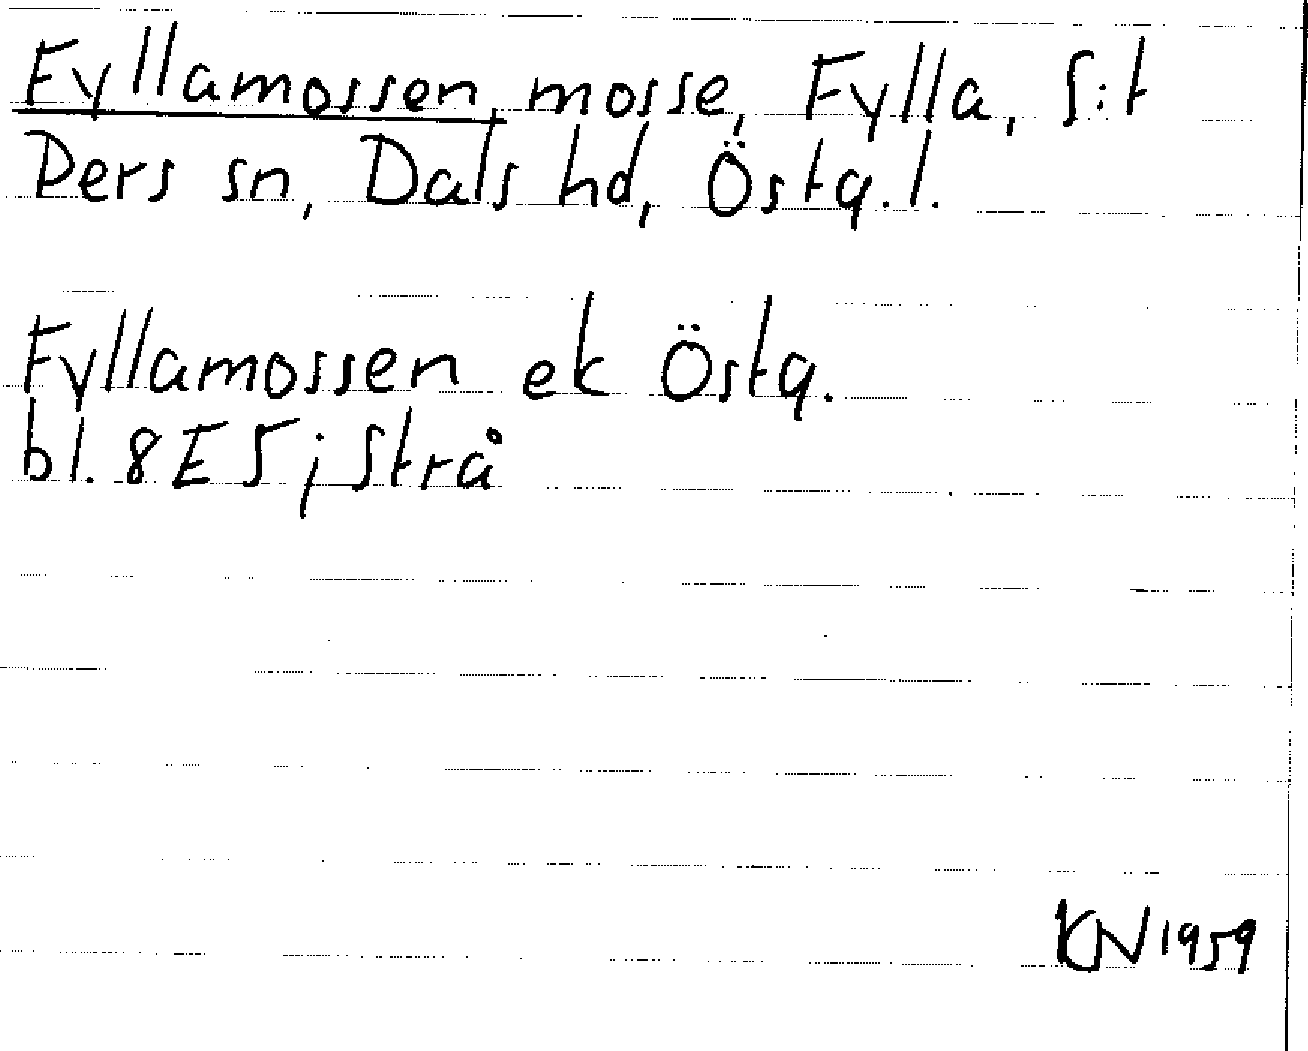 Fyllamossen, mosse, Fylla, S:t
Pers sn, Dals hd, Östg.l.
Fyllamossen ek Östg.
bl. 8E5; Strå
KN 1959